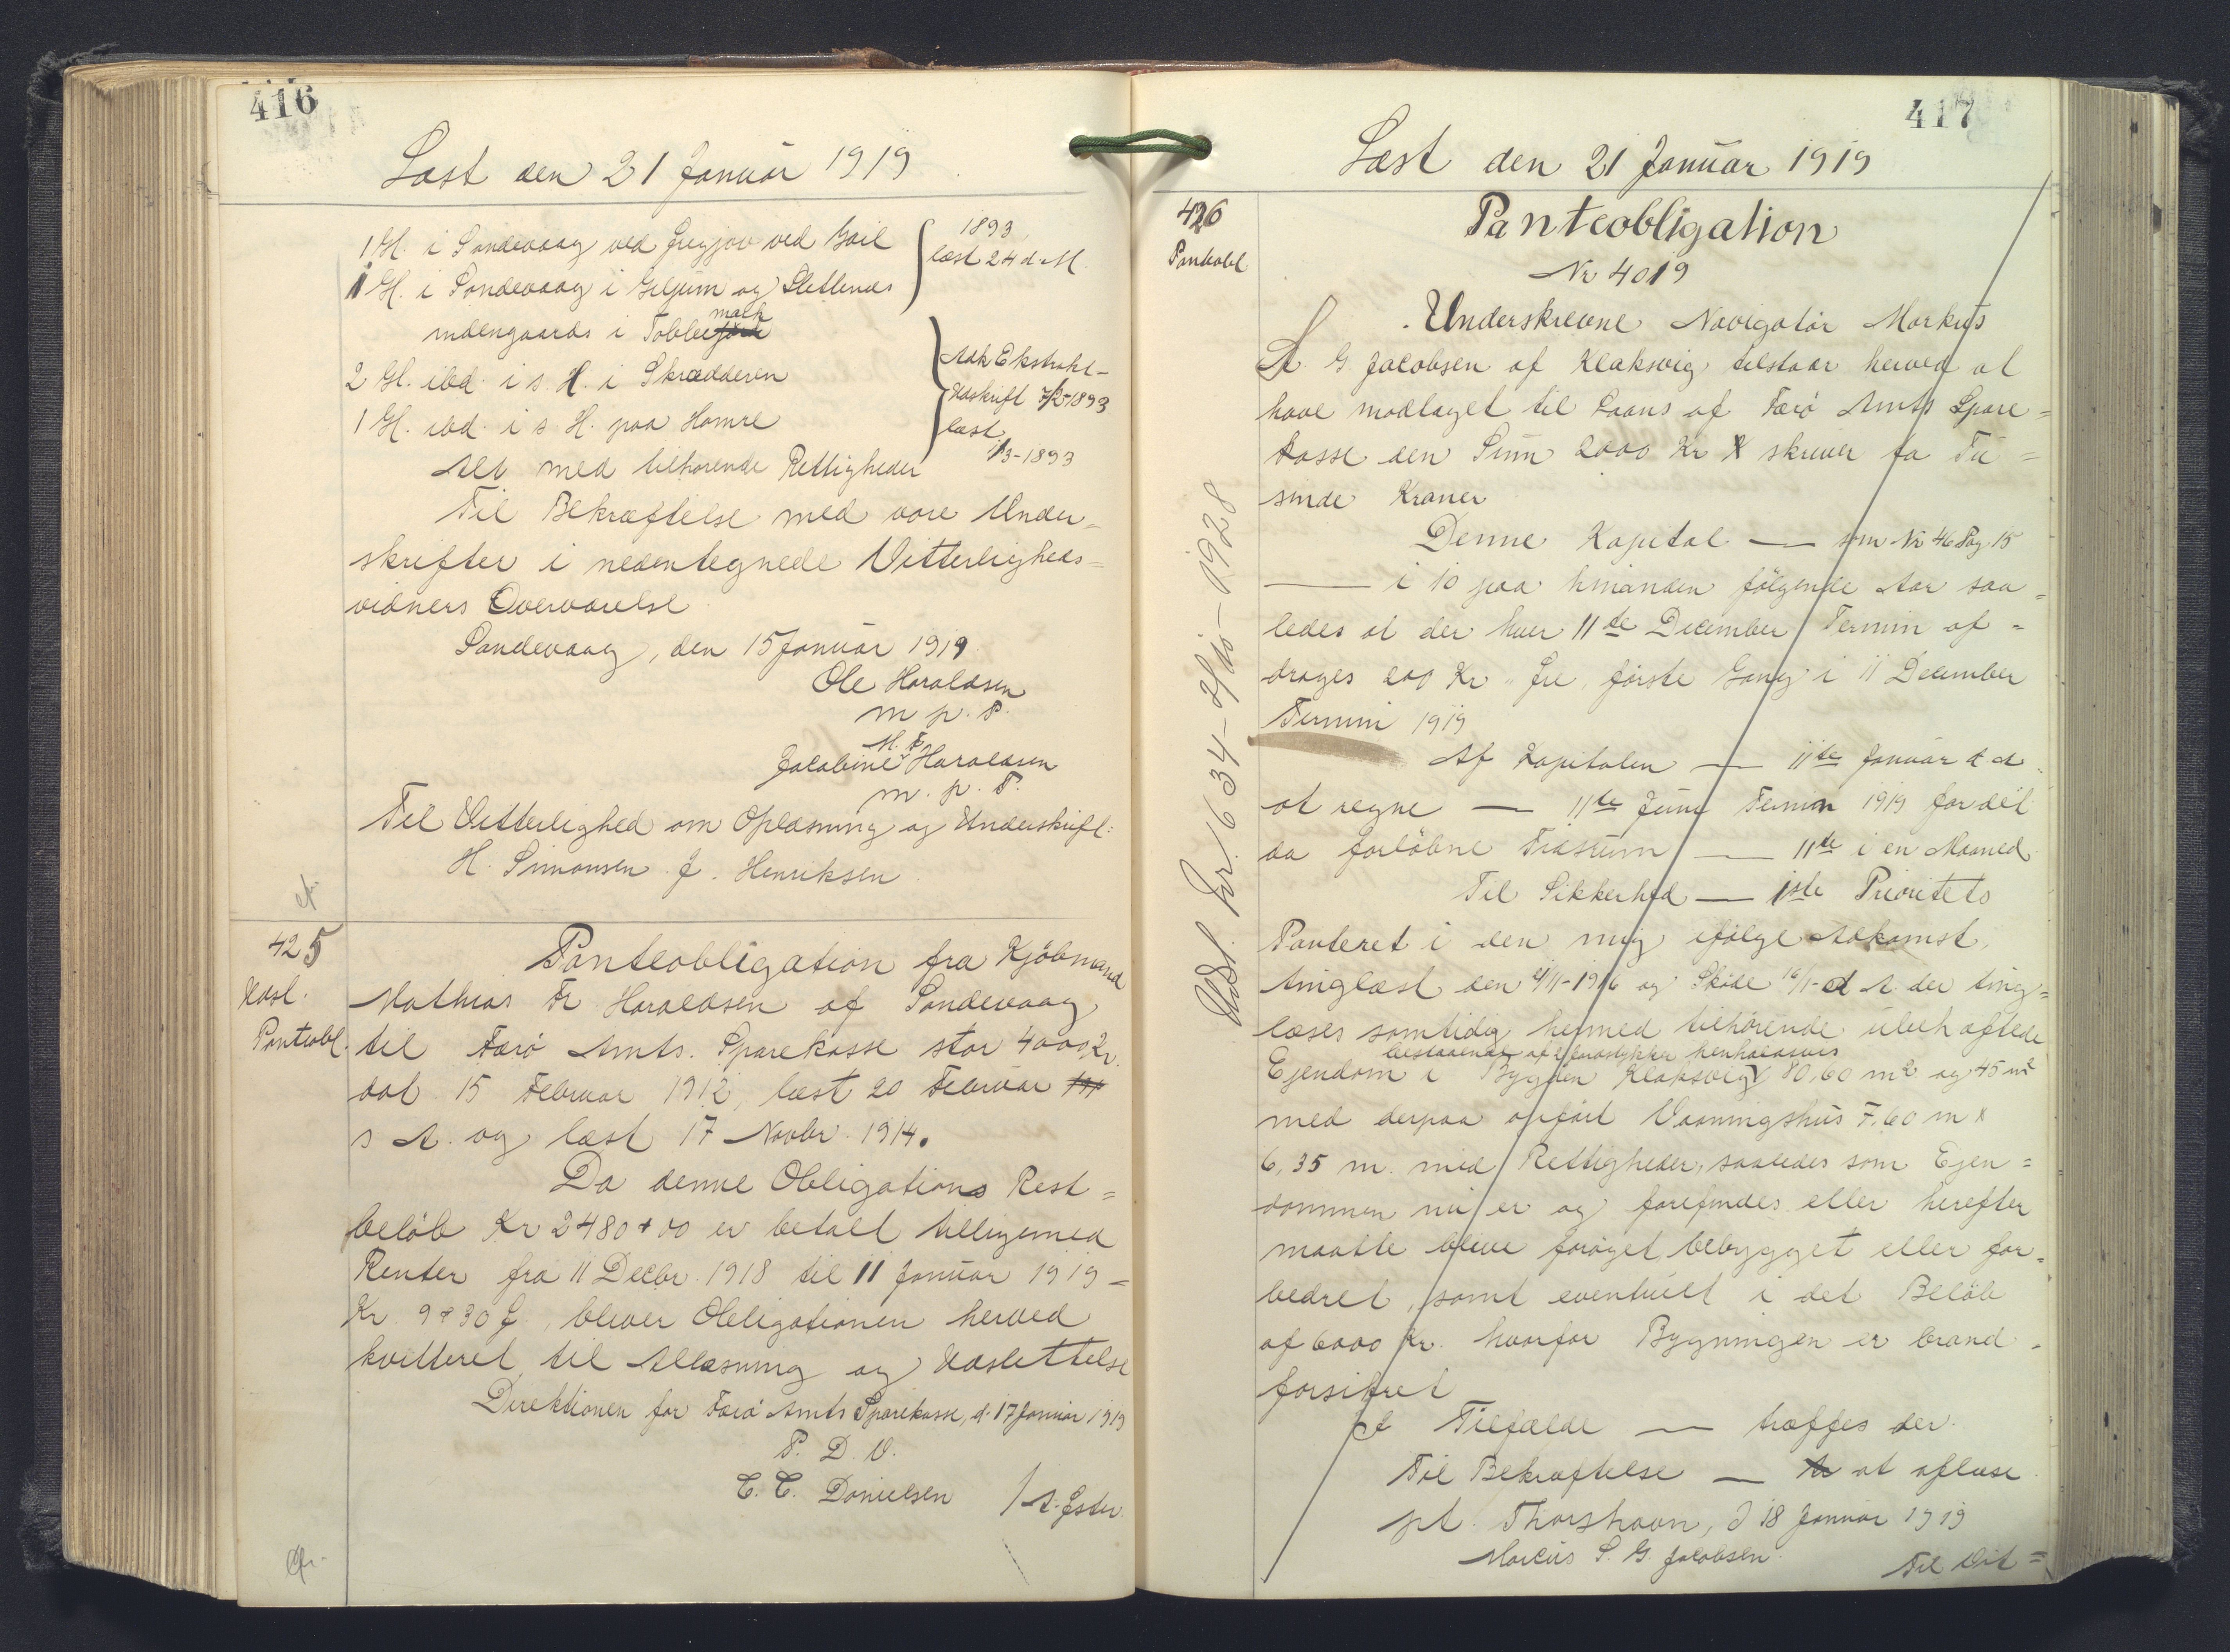 416
Læst den 21 Januar 1919
1 Gl. i Sandevaag ved Gregjov ved Gail
1 Gl. i Sandevaag i Giljum og Slettenes
indengaards i Toblee mark
2 Gl. ibd. i s. H. i Skrædderen
1 Gl. ibd. i s H. paa Hamre
1893
læst 24 d. M.
Adk Ekstrakt-
Udskrift 7/2-1893
læst
1/3-1893
Alt med tilhørende Rettigheder
Til Bekræftelse med vore Under=
skrifter i nedentegnede Vitterligheds=
vidners Overværelse
Sandevaag, den 15 Januar 1919.
Ole Haraldsen
m p. P.
M. F.
Jacobine Haraldsen
m. p. P.
Til Vitterlighed om Oplæsning og Underskrift:
H. Simonsen. J. Henriksen.
425
Udsl.
Panteobl.
Panteobligation fra Kjöbmand
Mathias Fr Haraldsen af Sandevaag
til Færö Amts. Sparekasse stor 4000 Kr.
dat. 15 Februar 1912, læst 20 Februar
s A. og læst 17 Novbr. 1914.
Da denne Obligations Rest=
beløb Kr 2480+00 er betalt tilligemed
Renter fra 11 Decbr. 1918 til 11 Januar 1919 =
Kr. 9+30 f., bliver Obligationen herved
kvitteret til Aflæsning og Udslettelse
Direktionen for Færö Amts Sparekasse, d. 17 Januar 1919
P. D. V.
C. C. Danielsen / A. Ester.
417
Læst den 21 Januar 1919
426
Panteobl
Udsl. Nr. 1634 - 2/10 - 1928
Panteobligation
Nr 4019
Underskrevne Navigatör Markus
S. G Jacobsen af Klaksvig tilstaar herved at
have modtaget til Laans af Færö Amts Spare=
kasse den Sum 2000 Kr skriver to Tu=
sinde Kroner
Denne Kapital — som Nr 46 Pag. 15
— i 10 paa hinanden fölgende Aar saa=
ledes at der hver 11te December Termin af=
drages 200 Kr. fre, förste Gang i 11 December
Termin 1919
Af Kapitalen — 11te Januar d. A.
at regne — 11te Juni Termin 1919 for det
da forløbne Tidsrum — 11te i en Maaned
Til Sikkerhed — 1ste Prioritets
Panteret i den mig ifölge Adkomst
tinglæst den 21/11-1916 og Skøde 16/1- d A. der ting=
læses samtidig hermed tilhörende ubehæftede
bestaaende af 2 Jordstykker henholdsvis
Ejendom i Bygden Klaksvig 80,60 m2 og 45 m2
med derpaa opført Vaaningshus 7,60 m x
6,35 m. med Rettigheder, saaledes som Ejen=
dommen nu er og forefindes eller herefter
maatte blive forøget bebygget eller for=
bedret, samt eventuelt i det Beløb
af 6000 Kr. hvorfor Bygningen er brand=
forsikret
I Tilfælde — træffes der.
Til Bekræftelse — at aflæse.
pt. Thorshavn, d 18 Januar 1919
Marcus S. G. Jacobsen.
Til Vit=